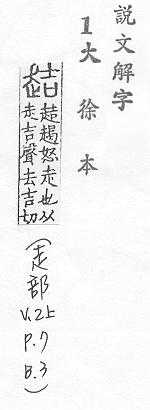 說文解字
1大徐本
趌 趌𧽸怒走也从
走吉聲去吉切
(走部
V.2上
P.7
B.3)